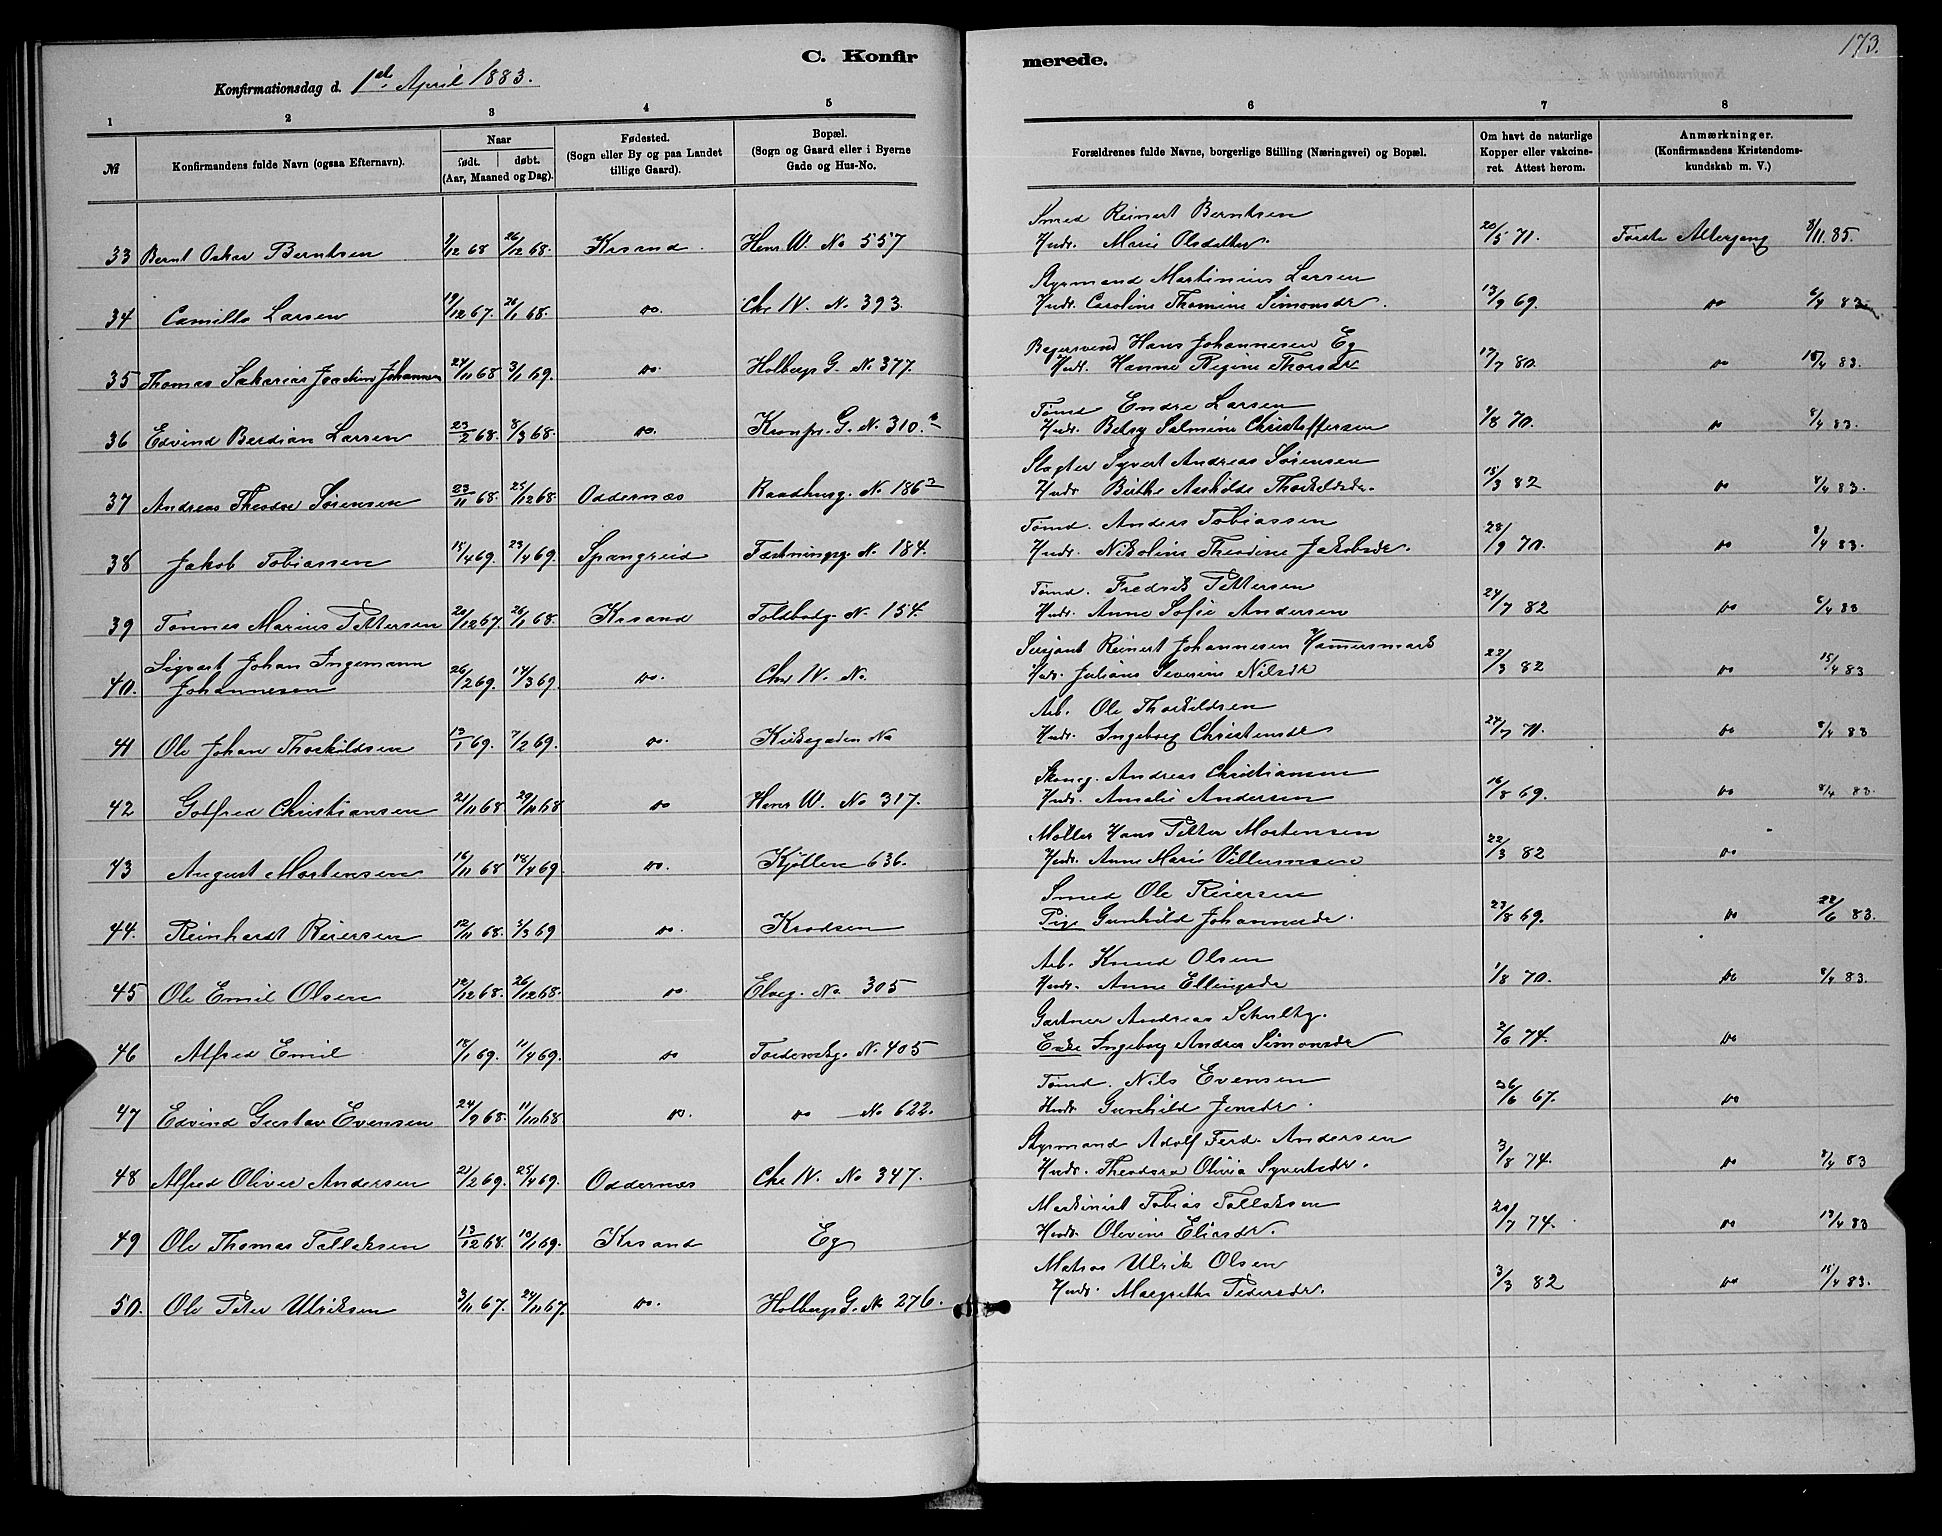 173.
C. Konfir merede.
Konfirmationsdag d. 1ste April 1883.
1 2 3 4 5 6 7 8
№ Konfirmandens fulde Navn (ogsaa Efternavn). Naar født. døbt. (Aar, Maaned og Dag). Fødested. (Sogn eller By og paa Landet tillige Gaard). Bopæl. (Sogn og Gaard eller i Byerne Gade og Hus-No. Forældrenes fulde Navne, borgerlige Stilling (Næringsvei) og Bopæl. Om havt de naturlige Kopper eller vakcineret. Attest herom. Anmærkninger. (Konfirmandens Kristendomskundskab m. V.)
Smed Reinert Berntsen
33 Bernt Oskar Berntsen 2/12 68 26/12 68. Krsand. Henr W. No 557 Hudr. Marie Olsdatter. 20/5 71. Første Altergang 8/11. 85.
Styrmand Martinius Larsen
34 Camillo Larsen 19/12 67. 26/1 68. do. Chr N. No. 393. Hudr. Caroline Thomine Simonsdr. 13/9 69. do 6/4 83
Bagersvend Hans Johannesen Eg
35 Thomas Sakarias Joachim Johannesen 24/11 68 3/1 69. do. Holbergs G. No. 377. Hudr. Hanne Regine Thorsdr 17/7 80. do 15/4 83.
Tømd Endre Larsen
36 Edvind Berdian Larsen 23/2 68. 8/3 68. do. Kronpr. G. No. 310. b Hudr. Betsy Salmine Christoffersen 9/8 70. do 8/4 83.
Slagter Syvert Andreas Sørensen
37 Andreas Theodor Sørensen 23/11 68. 25/12 68. Oddernæs Raadhusg. No 186 Hudr Birthe Aashilde Thorkildsdr. 15/3 82 do 8/4 83.
Tømd. Anders Tobiassen
38 Jakob Tobiassen 15/4 69. 23/4 69. Spangreid Fæstningsg. No. 184. Hudr. Nikoline Theodine Jakobsdr. 28/9 70. do 8/4 83.
Tømd. Fredrik Pettersen
39 Tønnes Marius Pettersen 20/12 67. 26/1 68. Krsand Toldbodg. No. 154. Hudr. Anne Sofie Andersen 24/7 82 do 8/4 83
Sigvart Johan Ingemann Sersjant Reinert Johannesen Hamersmark
40. Johannesen 26/2 69. 14/3 69. do. Chr N. No. Hudr. Juliane Severine Nilsdr 22/3 82 do 15/4 83
Arb. Ole Thorkildsen
41 Ole Johan Thorkildsen 13/1 69. 7/2 69. do. Kirkegaden No Hudr. Ingeborg Christensdr 24/7 71. do 8/4 83
Skomg. Andreas Christiansen
42 Gotfred Christiansen 21/11 68 29/11 68 do Henr W. No 317. Hudr. Amalie Andersen 16/8 69. do 8/4 83.
Møller Hans Petter Mortensen
43 August Mortensen 16/11 68 18/4 69. do. Kjøllen 636. Hudr. Anne Marie Villumsen 22/3 82 do
Smed Ole Reiersen
44. Reinhardt Reiersen 12/11 68. 5/3 69 do. Krodsen Pige Gunhild Johannesdr. 23/8 69. do 22/6 83.
Arb. Knud Olsen
45 Ole Emil Olsen 12/12 68. 26/12 68. do. Elveg. No. 305 Hudr. Anne Ellingsdr 1/8 70. do 8/4 83.
Gartner Andreas Schultz.
46 Alfred Emil 18/1 69. 11/4 69. do Tordenskg. No. 405 Enke Ingeborg Andrea Simonsdr 2/6 74. do
Tømd. Nils Evensen
47 Edvind Gustav Evensen 24/9 68. 11/10 68 do. do No 622. Hudr Gunhild Jensdr. 26/6 67. do
Styrmand Adolf Ferd. Andersen
48 Alfred Oliver Andersen 21/2 69. 25/4 69. Oddernæs Chr N. No 347. Hudr. Theodora Olivia Syvertsdr. 3/8 74. do 8/4 83
Maskinist Tobias Tallaksen
49 Ole Thomas Tallaksen 13/12 68. 10/1 69. Krsand Eg Hudr Olivine Eliasdr. 20/7 74. do 13/4 83
Matros Ulrik Olsen
50. Ole Peter Ulriksen 3/11 67. 24/11 67. do. Holbergs G. No 276. Hudr. Margrethe Pedersdr. 3/3 82 do 15/4 83.